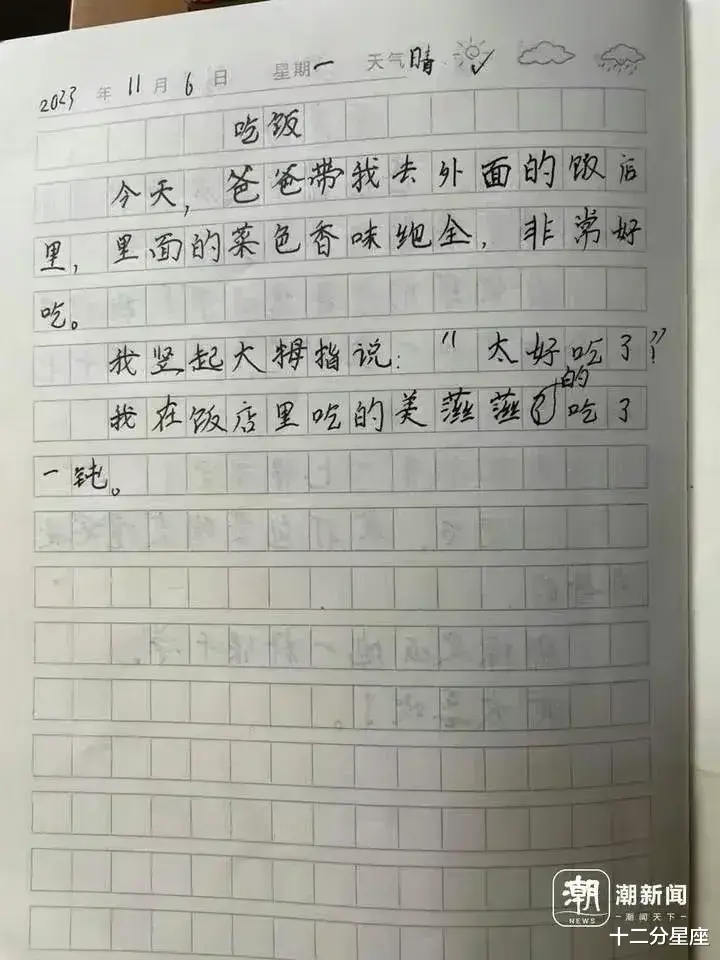 2023 年 11 月 6 日 星期一 天气晴
吃饭
今天,爸爸带我去外面的饭店
里,里面的菜色香味绝全,非常好
吃。
我竖起大拇指说:“太好吃了”!
的
我在饭店里吃的美蘸蘸吃了
一钝。
潮 潮新闻
NEWS 潮闻天下
十二分星座